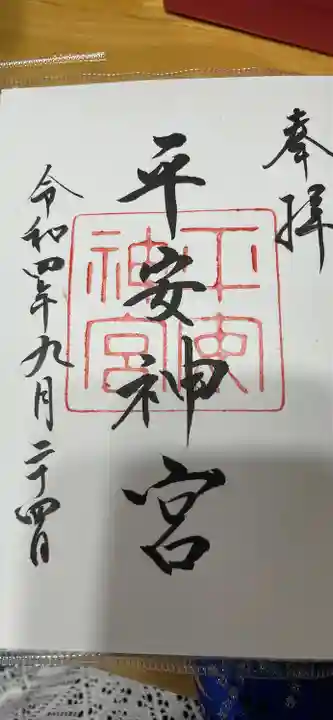 奉拝
平安神宮
平安神宮
令和四年九月二十四日